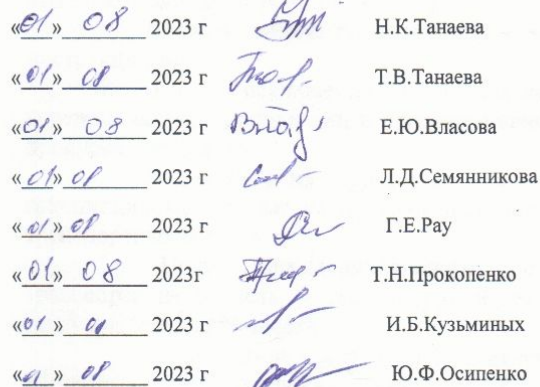 «01» 08 2023 г Н.К.Танаева
«01» 08 2023 г Т.В.Танаева
«01» 08 2023 г Е.Ю.Власова
«01» 08 2023 г Л.Д.Семянникова
«01» 08 2023 г Г.Е.Рау
«01» 08 2023г Т.Н.Прокопенко
«01» 2023 г И.Б.Кузьминых
« » 08 2023 г Ю.Ф.Осипенко